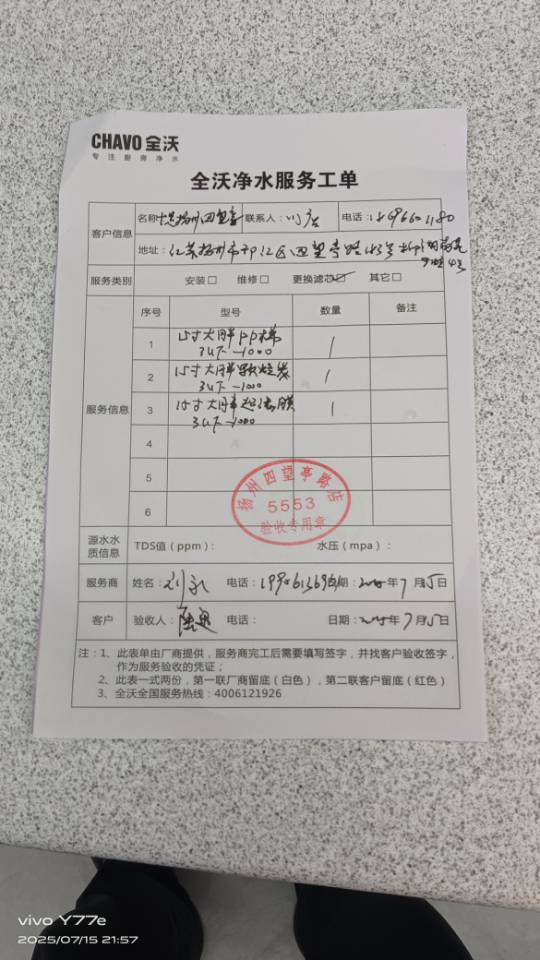 CHAVO 全沃
专注厨房净水
全沃净水服务工单
客户信息
名称 扬州四望亭 联系人: 门店 电话:
地址: 江苏扬州市邗江区四望亭路
服务类别 安装□ 维修□ 更换滤芯☑ 其它□
服务信息
序号 型号 数量 备注
1 15寸大胖PP棉 1
3UF-1000
2 15寸大胖 1
3UF-1000
3 15寸大胖超滤膜 1
3UF-1000
4
5
6
扬州四望亭路店
5553
验收专用章
源水水质信息 TDS值(ppm): 水压(mpa):
服务商 姓名: 电话: 日期: 2025年7月15日
客户 验收人: 电话: 日期: 2025年7月15日
注:1、此表单由厂商提供,服务商完工后需要填写签字,并找客户验收签字,
作为服务验收的凭证;
2、此表一式两份,第一联厂商留底(白色),第二联客户留底(红色)
3、全沃全国服务热线:4006121926
vivo Y77e
2025/07/15 21:57